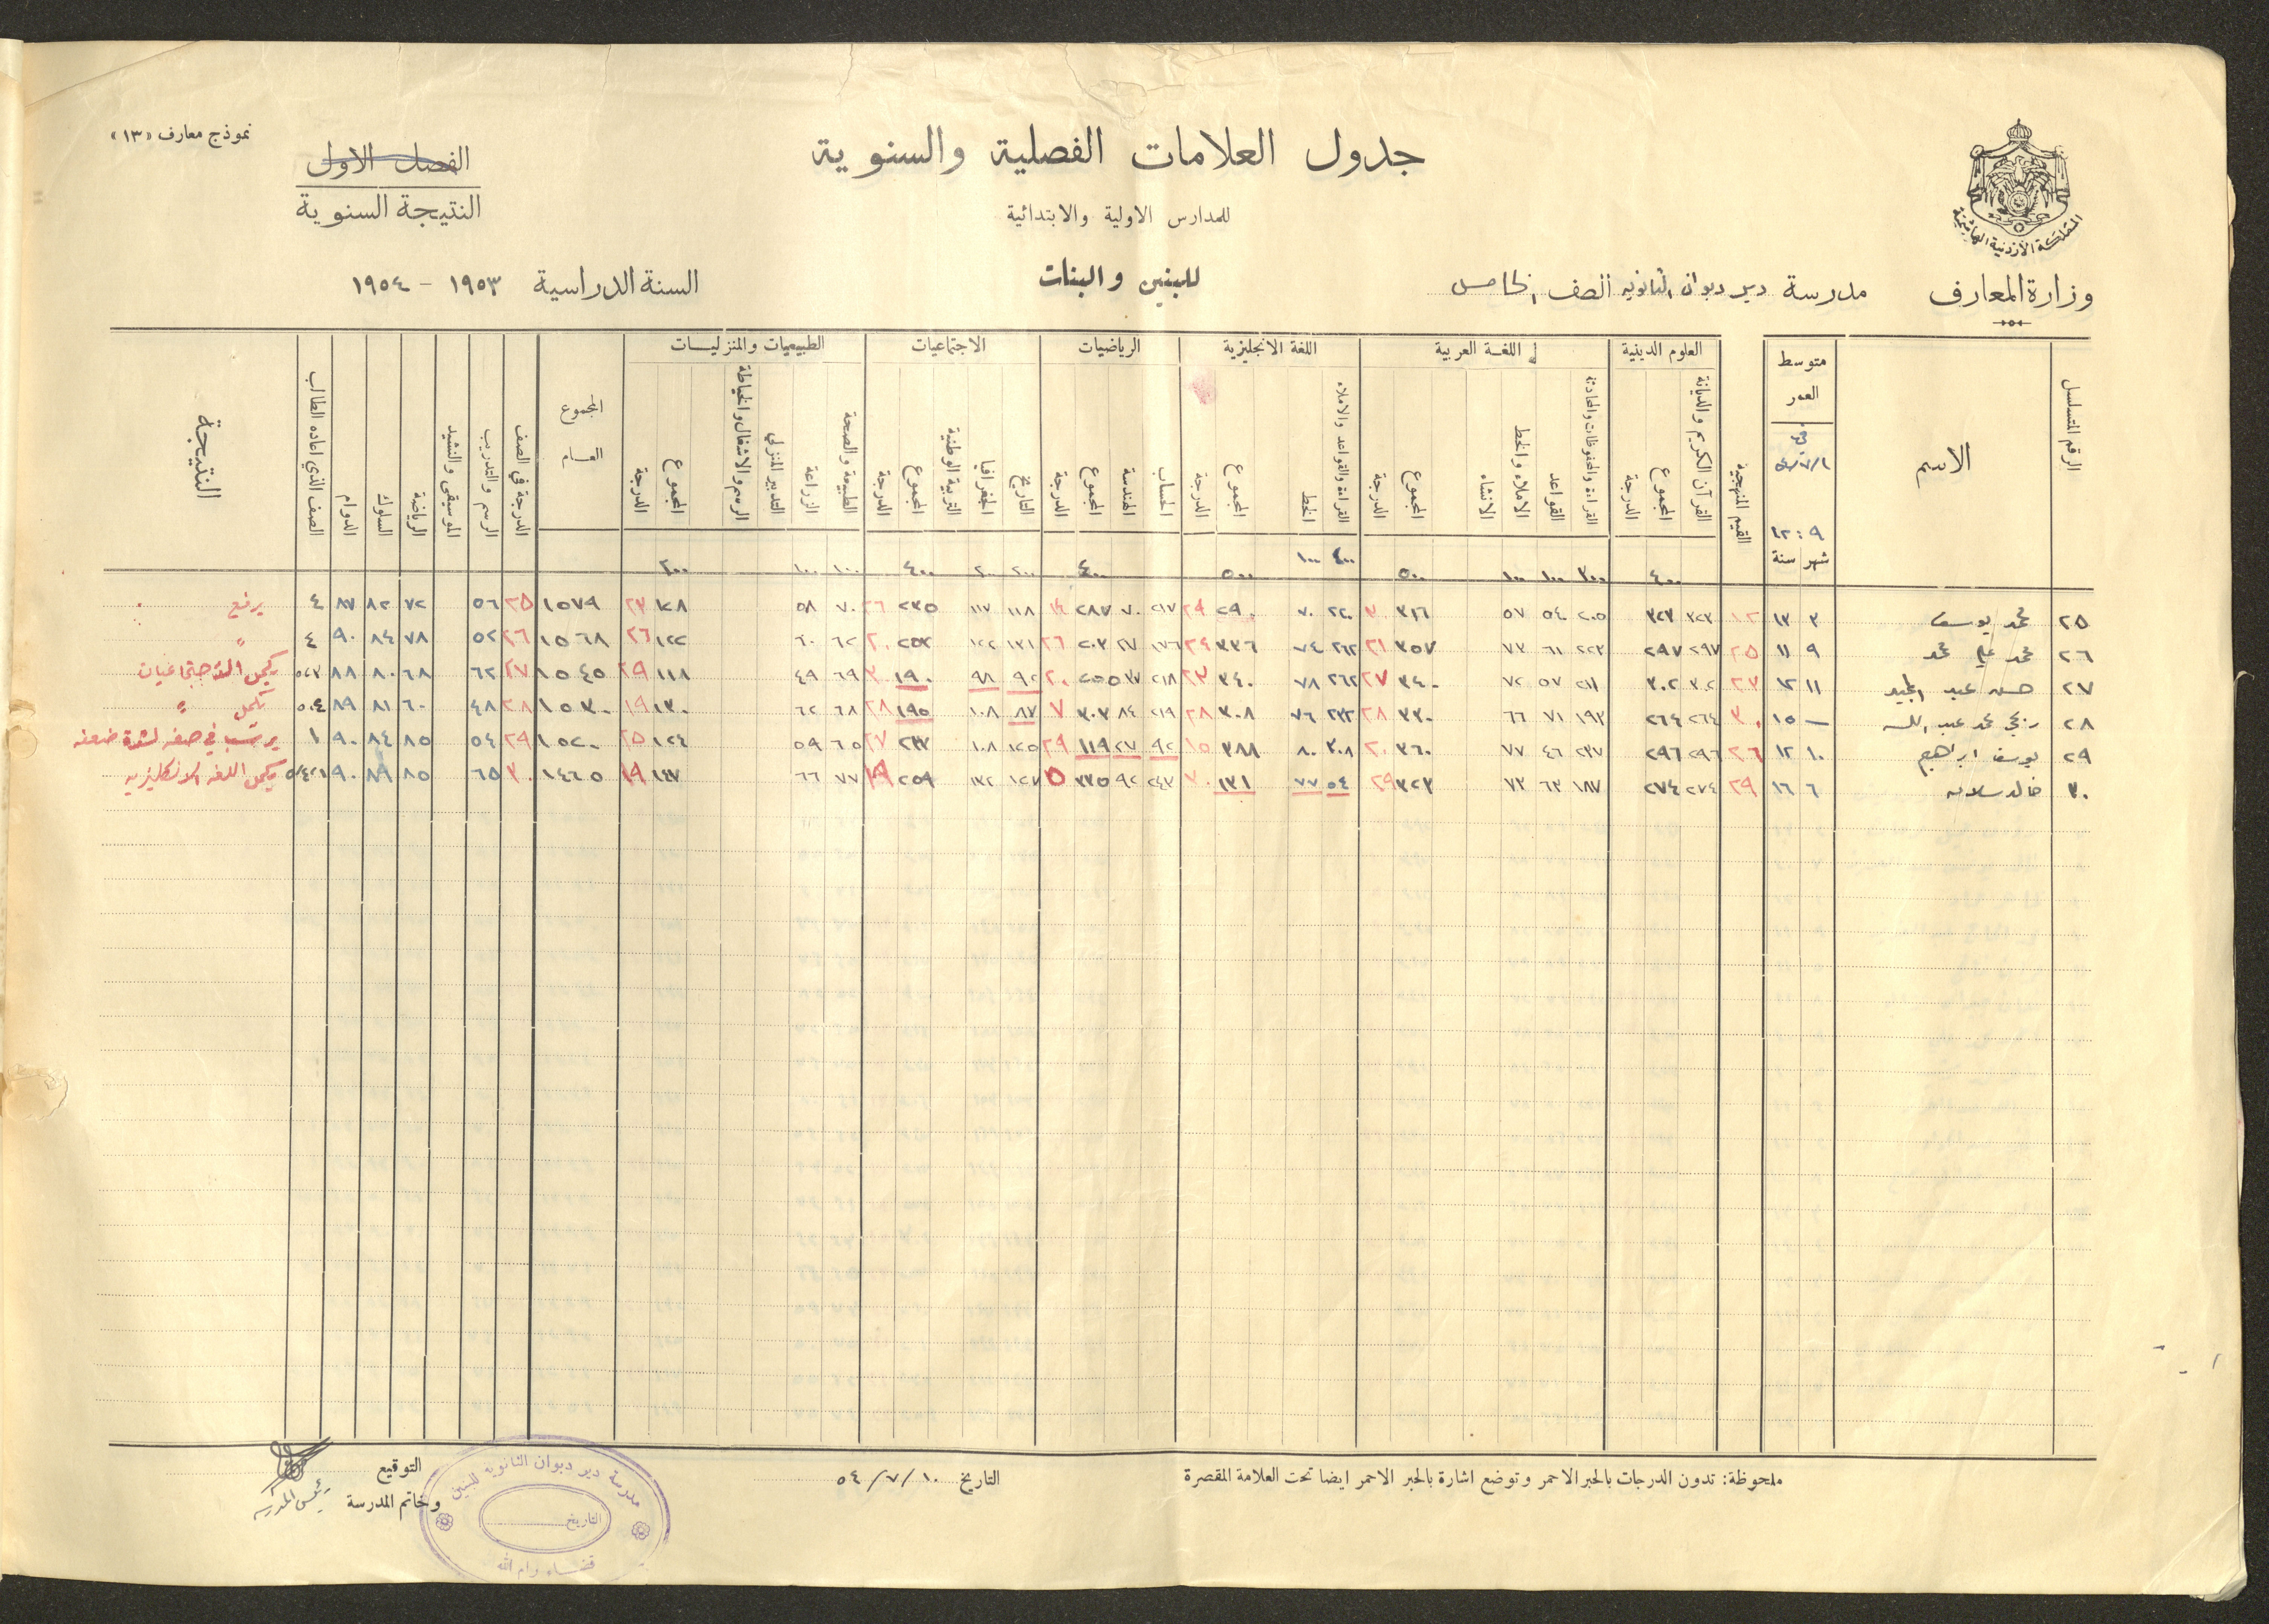 نموذج معارف «١٣»
جدول العلامات الفصلية والسنوية
الفصل الاول
النتيجة السنوية
للمدارس الاولية والابتدائية
المملكة الأردنية الهاشمية
وزارة المعارف
مدرسة دير دبوان الثانويه الصف الخامس
للبنين والبنات
السنة الدراسية ١٩٥٣ - ١٩٥٤
الرقم المتسلسل
الاسم
متوسط العمر في ١/٧/٥٤
٩ : ١٢
شهر سنة
القيم المنهجية
العلوم الدينية
القرآن الكريم والديانة المجموع الدرجة
اللغة العربية
القراءة والمحفوظات والمحادثة القواعد الاملاء والخط الانشاء المجموع الدرجة
اللغة الانجليزية
القراءة والقواعد والاملاء الخط المجموع الدرجة
الرياضيات
الحساب الهندسة المجموع الدرجة
الاجتماعيات
التاريخ الجغرافيا التربية الوطنية المجموع الدرجة
الطبيعيات والمنزليات
الطبيعة والصحة الزراعة التدبير المنزلي الرسم والاشغال والخياطة المجموع الدرجة
المجموع العام
الدرجة في الصف
الرسم والتدريب
الموسيقى والنشيد
الرياضة
السلوك
الدوام
الصف الذي اعاده الطالب
النتيجة
٤٠٠ ٣٠٠ ١٠٠ ١٠٠ ٥٠٠ ٤٠٠ ١٠٠ ٥٠٠ ٤٠٠ ٢٠٠ ٢٠٠ ٤٠٠ ١٠٠ ١٠٠ ٢٠٠
٢٥ محمد يوسف ٣ ١٣ ١٢ ٣٢٣ ٣٢٣ ٢٠٥ ٥٤ ٥٧ ٣١٦ ٣٠ ٢٢٠ ٧٠ ٢٩٠ ٢٩ ٢١٧ ٧٠ ٢٨٧ ١٤ ١١٨ ١١٧ ٢٣٥ ٢٦ ٧٠ ٥٨ ١٢٨ ٢٣ ١٥٧٩ ٢٥ ٥٦ ٧٢ ٨٢ ٨٧ ٤ يرفع
٢٦ محمد علي محمد ٩ ١١ ٢٥ ٢٩٧ ٢٩٧ ٢٢٣ ٦١ ٧٣ ٣٥٧ ٢١ ٢٦٢ ٧٤ ٣٣٦ ٢٤ ١٧٦ ٢٧ ٢٠٣ ٢٦ ١٣١ ١٢٢ ٢٥٣ ٢٠ ٦٢ ٦٠ ١٢٢ ٢٦ ١٥٦٨ ٢٦ ٥٢ ٧٨ ٨٤ ٩٠ ٤ "
٢٧ حسن عبد المجيد ١١ ١٢ ٢٣ ٣٠٢ ٣٠٢ ٢١١ ٥٧ ٧٢ ٣٤٠ ٢٧ ٢٦٢ ٧٨ ٣٤٠ ٢٣ ٢١٨ ٣٧ ٢٥٥ ٢٠ ٩٢ ٩٨ ١٩٠ ٣٠ ٦٩ ٤٩ ١١٨ ٢٩ ١٥٤٥ ٢٧ ٦٢ ٦٨ ٨٠ ٨٨ ٥،٢،٣ يكمل الاجتماعيات
٢٨ ربحي محمد عبد الله — ١٥ ٣٠ ٢٦٤ ٢٦٤ ١٩٣ ٧١ ٦٦ ٣٣٠ ٢٨ ٢٣٢ ٧٦ ٣٠٨ ٢٨ ٢١٩ ٨٤ ٣٠٣ ٧ ٨٧ ١٠٨ ١٩٥ ٢٨ ٦٨ ٦٢ ١٣٠ ١٩ ١٥٣٠ ٢٨ ٤٨ ٦٠ ٨١ ٨٩ ٥،٤ يكمل "
٢٩ يوسف ابراهيم ١٠ ١٢ ٢٦ ٢٩٦ ٢٩٦ ٢٣٧ ٤٦ ٧٧ ٣٦٠ ٢٠ ٣٠٨ ٨٠ ٣٨٨ ١٥ ٩٢ ٢٧ ١١٩ ٢٩ ١٢٥ ١٠٨ ٢٣٣ ٢٧ ٦٥ ٥٩ ١٢٤ ٢٥ ١٥٢٠ ٢٩ ٥٤ ٨٥ ٨٤ ٩٠ ١ يرسب في صفه لشدة ضعفه
٣٠ خالد سلامه ٦ ١٦ ٢٩ ٢٧٤ ٢٧٤ ١٨٧ ٦٣ ٧٣ ٣٢٣ ٢٩ ٥٤ ٧٧ ١٣١ ٣٠ ٢٤٣ ٩٢ ٣٣٥ ٥ ١٢٧ ١٣٢ ٢٥٩ ١٩ ٧٧ ٦٦ ١٤٣ ١٩ ١٤٦٥ ٣٠ ٦٥ ٨٥ ٨٩ ٩٠ يكمل اللغه الانكليزيه
ملحوظة: تدون الدرجات بالحبر الاحمر وتوضع اشارة بالحبر الاحمر ايضا تحت العلامة المقصرة
التاريخ ١٠ / ٧ / ٥٤
التوقيع
وخاتم المدرسة
رئيس المدرسه
مدرسة دير دبوان الثانويه للبنين
التاريخ
قضاء رام الله